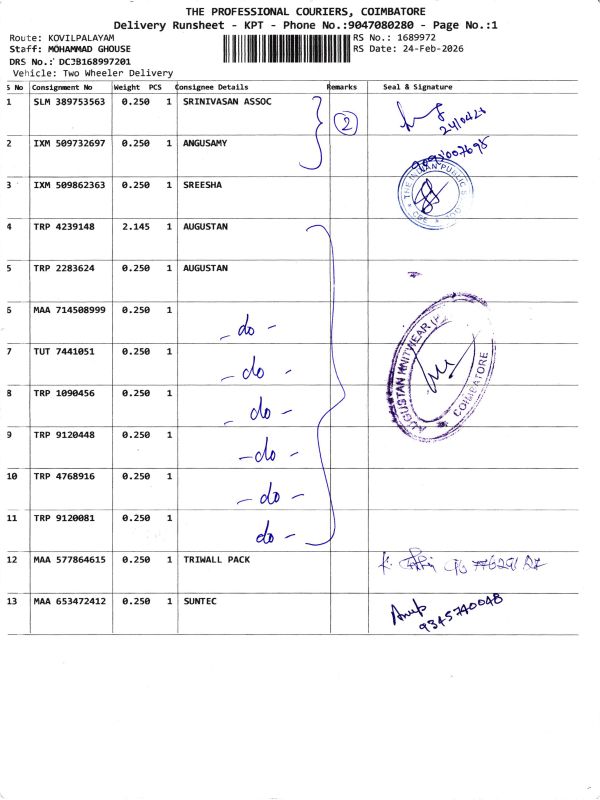 THE PROFESSIONAL COURIERS, COIMBATORE
Delivery Runsheet - KPT - Phone No.:9047080280 - Page No.:1
Route: KOVILPALAYAM RS No.: 1689972
Staff: MOHAMMAD GHOUSE RS Date: 24-Feb-2026
DRS No.: DCJB168997201
Vehicle: Two Wheeler Delivery
S No Consignment No Weight PCS Consignee Details Remarks Seal & Signature
1 SLM 389753563 0.250 1 SRINIVASAN ASSOC
2
2 IXM 509732697 0.250 1 ANGUSAMY
3 IXM 509862363 0.250 1 SREESHA
THE INDIAN PUBLIC
CBE
4 TRP 4239148 2.145 1 AUGUSTAN
5 TRP 2283624 0.250 1 AUGUSTAN
6 MAA 714508999 0.250 1 - do -
7 TUT 7441051 0.250 1 - do -
8 TRP 1090456 0.250 1 - do -
AUGUSTAN KNITWEAR (P)
COIMBATORE
9 TRP 9120448 0.250 1 - do -
10 TRP 4768916 0.250 1 - do -
11 TRP 9120081 0.250 1 do -
12 MAA 577864615 0.250 1 TRIWALL PACK
13 MAA 653472412 0.250 1 SUNTEC Anup
9345740048